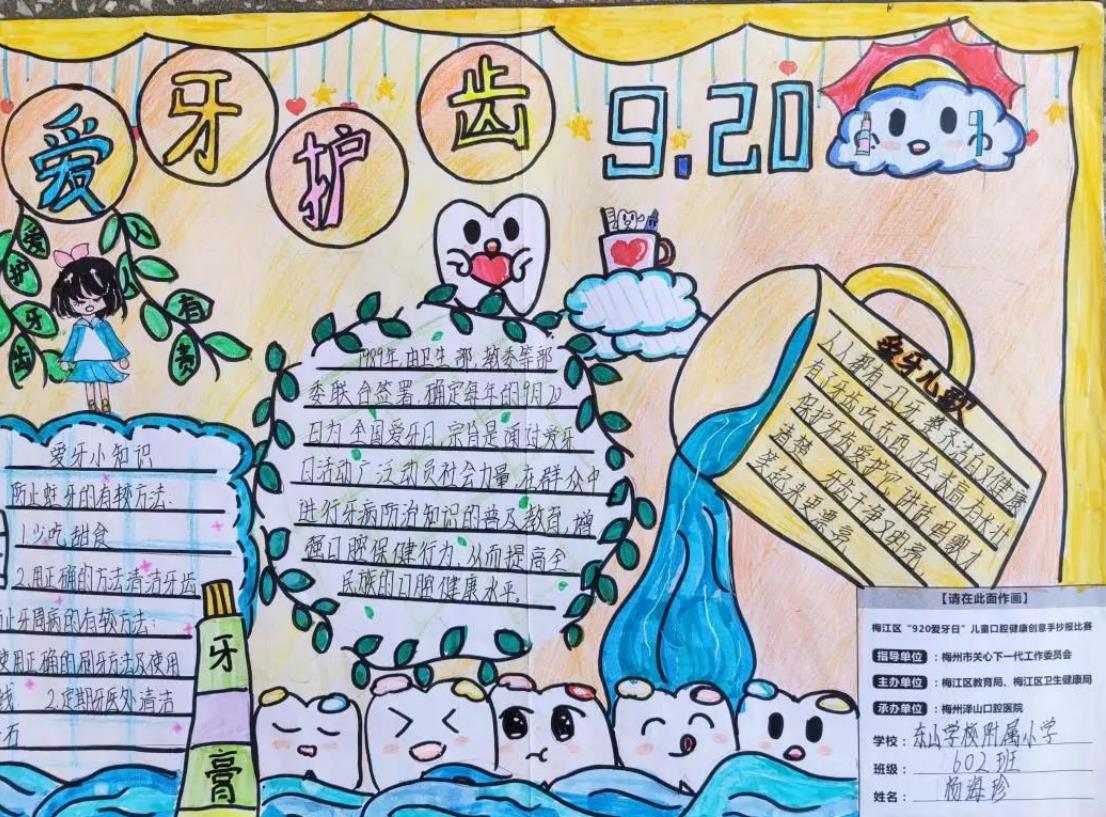 爱牙护齿 9.20
爱护牙齿
人人有责
爱牙小知识
防止蛀牙的有较方法:
1.少吃甜食
2.用正确的方法清洁牙齿
止牙周病的有较方法:
使用正确的刷牙方法及使用
线 2.定期牙医处清洁
石
牙膏
1989年,由卫生部、教委等部
委联合签署,确定每年的9月20
日为全国爱牙日,宗旨是通过爱牙
日活动广泛动员社会力量,在群众中
进行牙病防治知识的普及教育,增
强口腔保健行为,从而提高全
民族的口腔健康水平.
爱牙小歌
人人都有一口牙,整齐洁白又健康
有了牙齿吃东西,个会长高
保护牙齿爱护它,讲话唱歌
清楚,牙齿干净又明亮
笑起来更漂亮
【请在此面作画】
梅江区“920爱牙日”儿童口腔健康创意手抄报比赛
指导单位:梅州市关心下一代工作委员会
主办单位:梅江区教育局、梅江区卫生健康局
承办单位:梅州泽山口腔医院
学校:东山学校附属小学
班级:602班
姓名:杨海珍